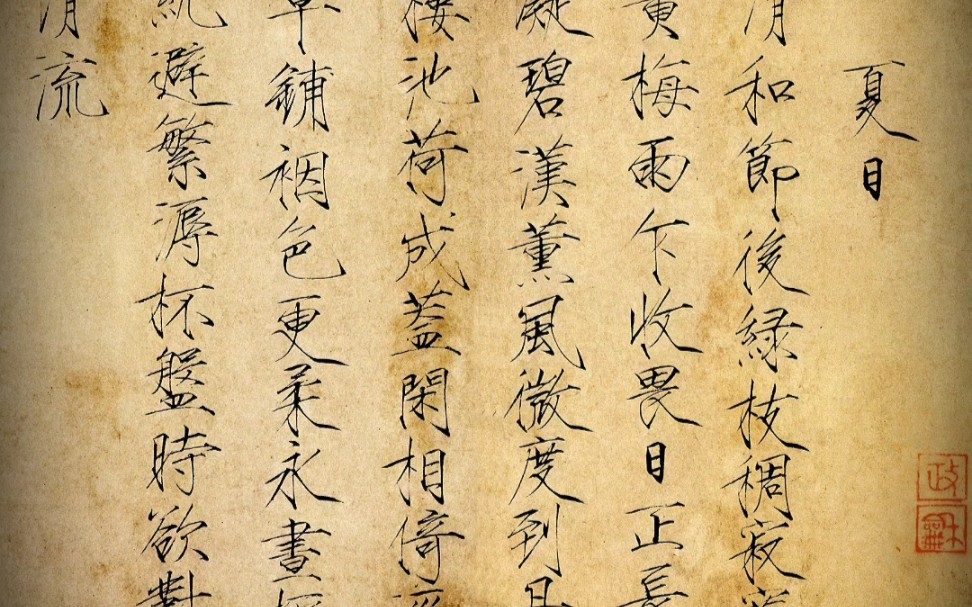 夏日
清和節後綠枝稠寂
黃梅雨乍收畏日正長
凝碧漢薰風微度到丹
樓池荷成蓋閑相倚
草鋪裀色更柔永晝
紈避繁溽杯盤時欲對
清流
政
龢